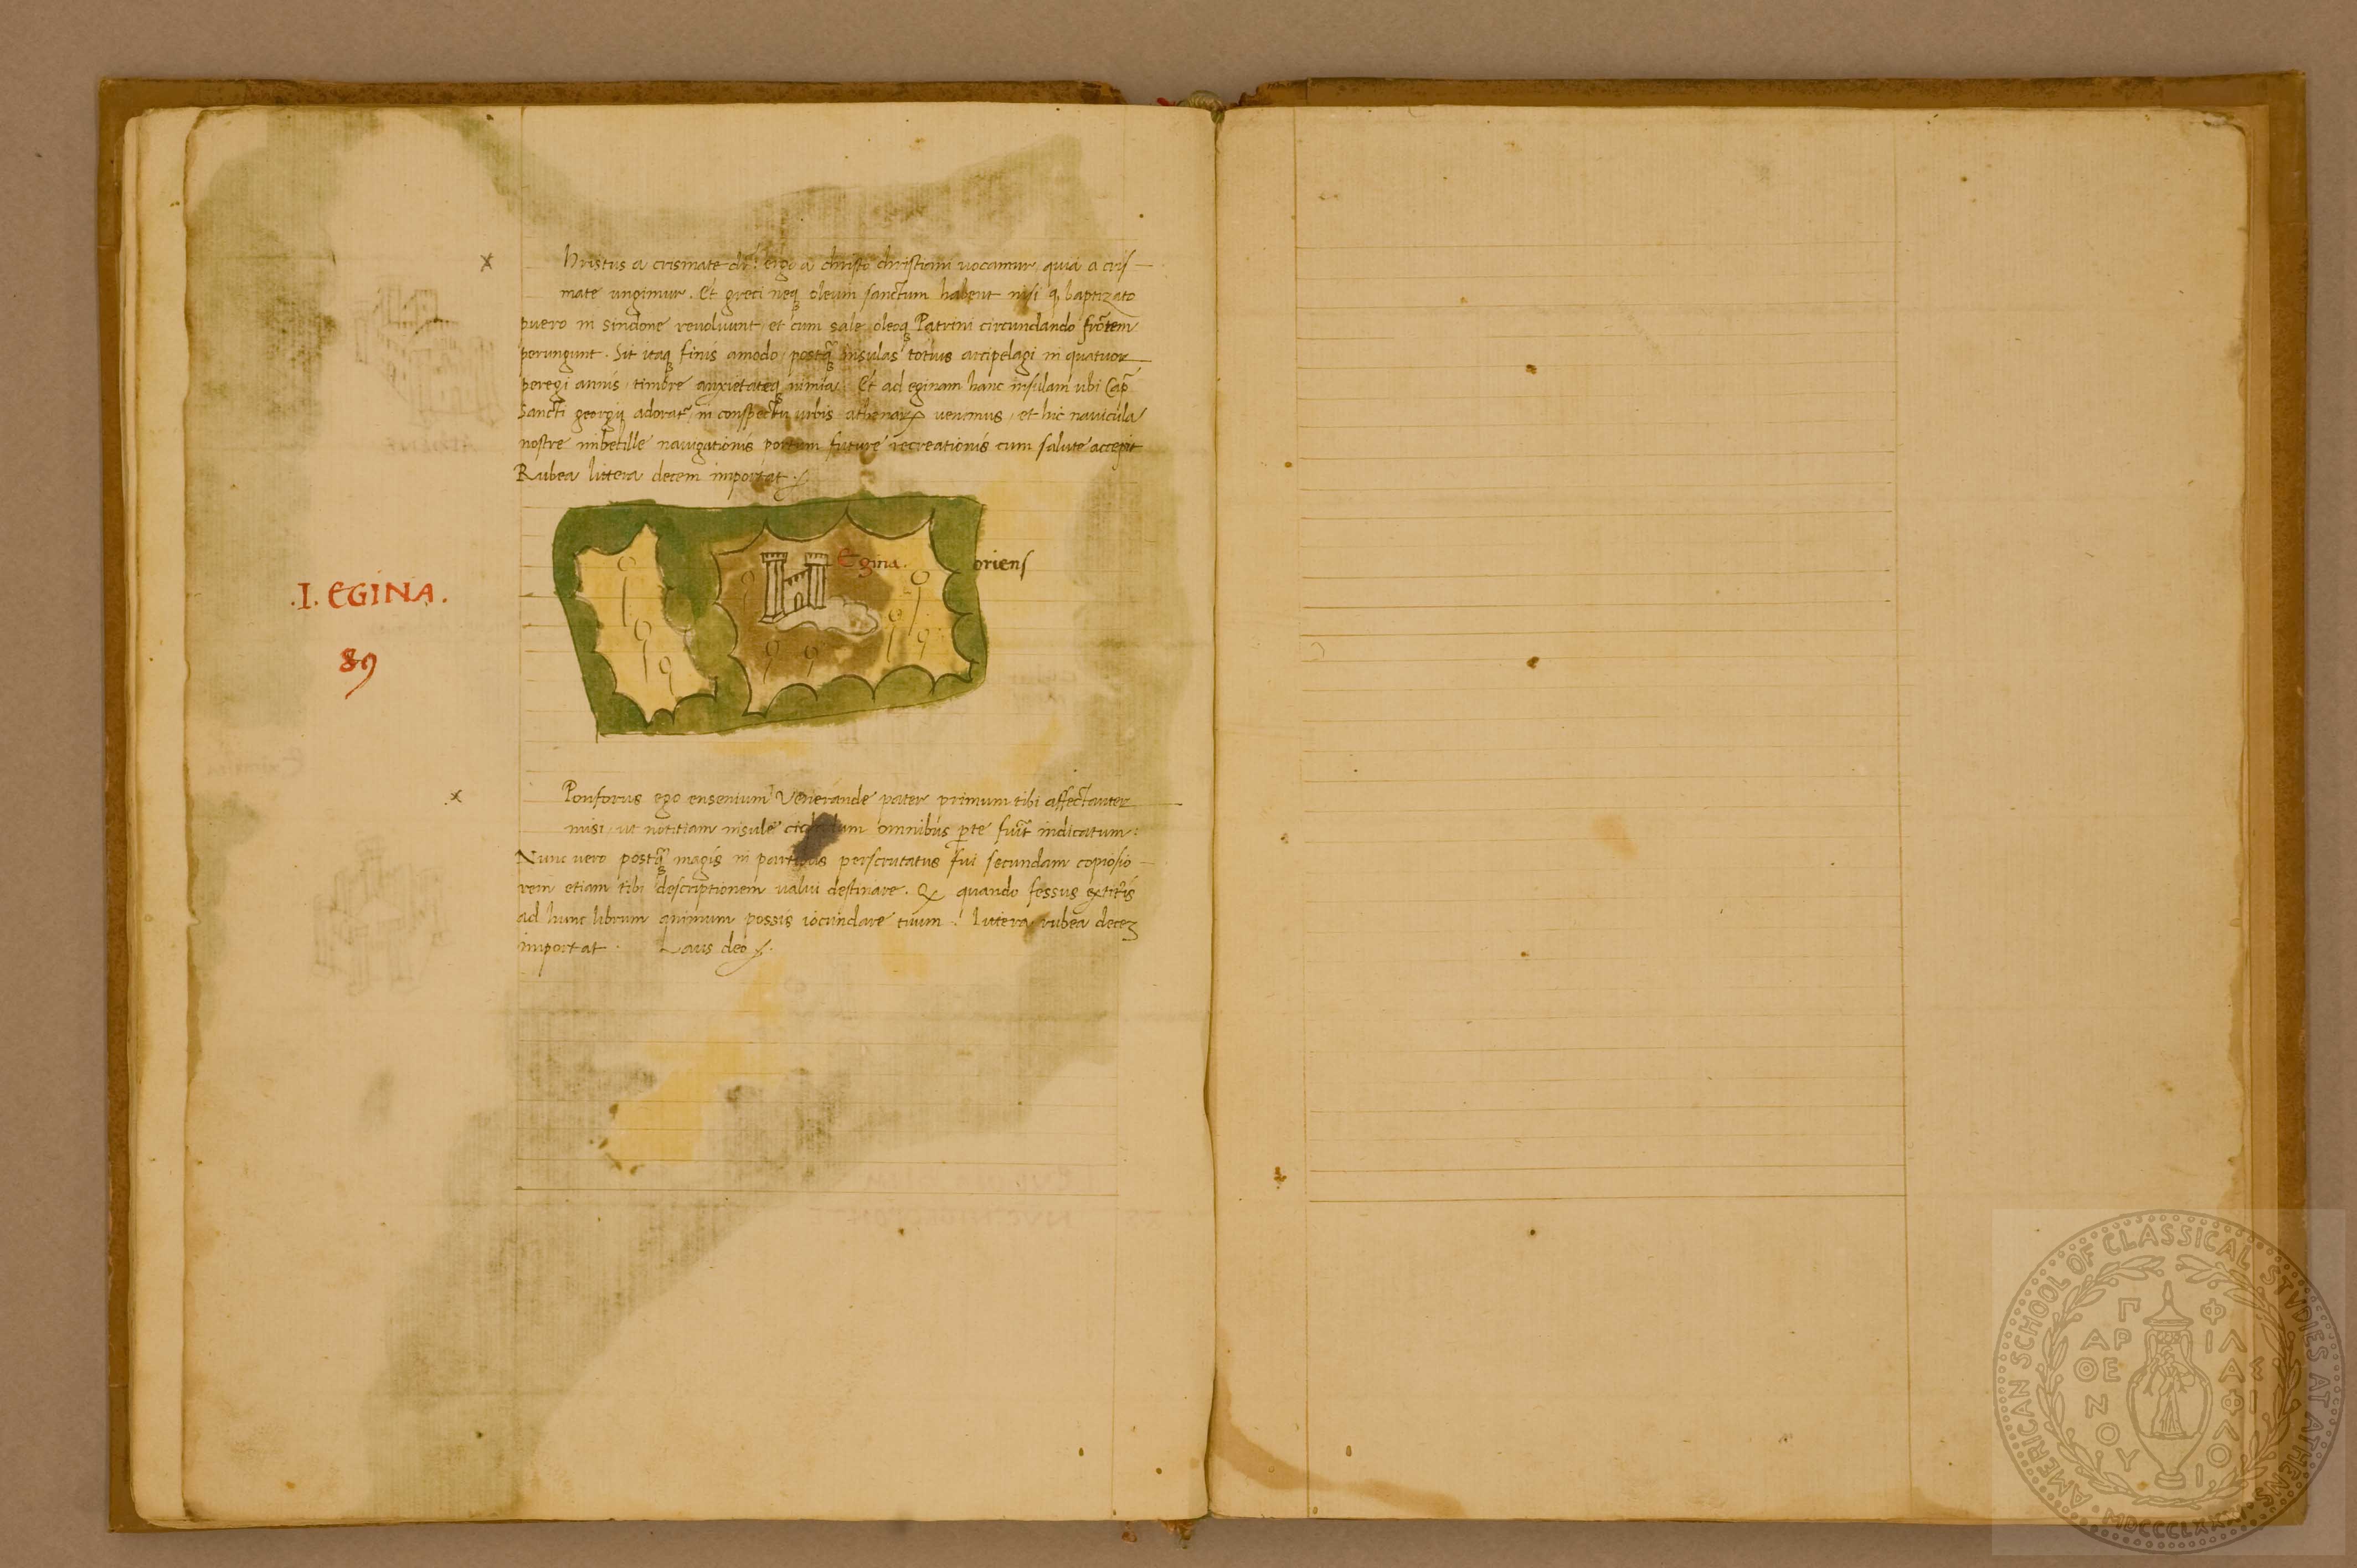 hristus a crismate dr̄: ergo a christo christiani uocamur, quia a cris—
mate ungimur. Et greci neq oleum sanctum habent nisi q baptizato
puero in sindone reuoluunt, et cum sale oleoq Patrini circundando frōtem
perungunt. Sit itaq finis amodo, postq̄ insulas totius arcipelagi in quatuor
peregi annis, timore anxietateq nimia. Et ad eginam hanc insulam ubi Cap̄
Sancti georgij adorat̄, in conspectu urbis athenarꝝ uenimus, et hic nauicula
nostre imbecille nauigationis portum future recreationis cum salute accepit
Rubea littera decem importat.
Egina.
oriens
.I. EGINA.
89
ego ensenium Venerande pater primum tibi affectanter
misi, ut notitiam insule omnibus ꝑte indicatum:
Nunc uero postq̄ magis in partibus perscrutatus fui secundam copiosio—
rem etiam tibi descriptionem ualui destinare. quando fessus
ad hunc librum animum possis iocundare tuum: littera rubea decez
importat. Laus deo.
AMERICAN SCHOOL OF CLASSICAL STVDIES AT ATHENS
ΠΑΡΘΕΝΟΥ ΦΙΛΑΣ ΦΙΛΟΙ